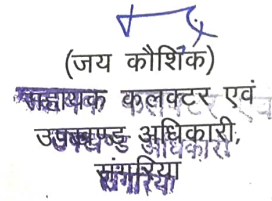 (जय कौशिक)
सहायक कलक्टर एवं
उपखण्ड अधिकारी,
संगरिया